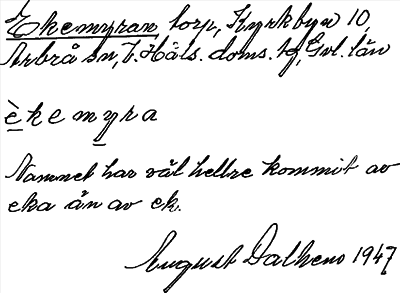 Ekemyran, torp, Kyrkbyn 10,
Arbrå sn, V. Häls. doms. tg, Gvl. län
èkemyra
Namnet har väl hellre kommit av
eka än av ek.
August Dalheno 1947